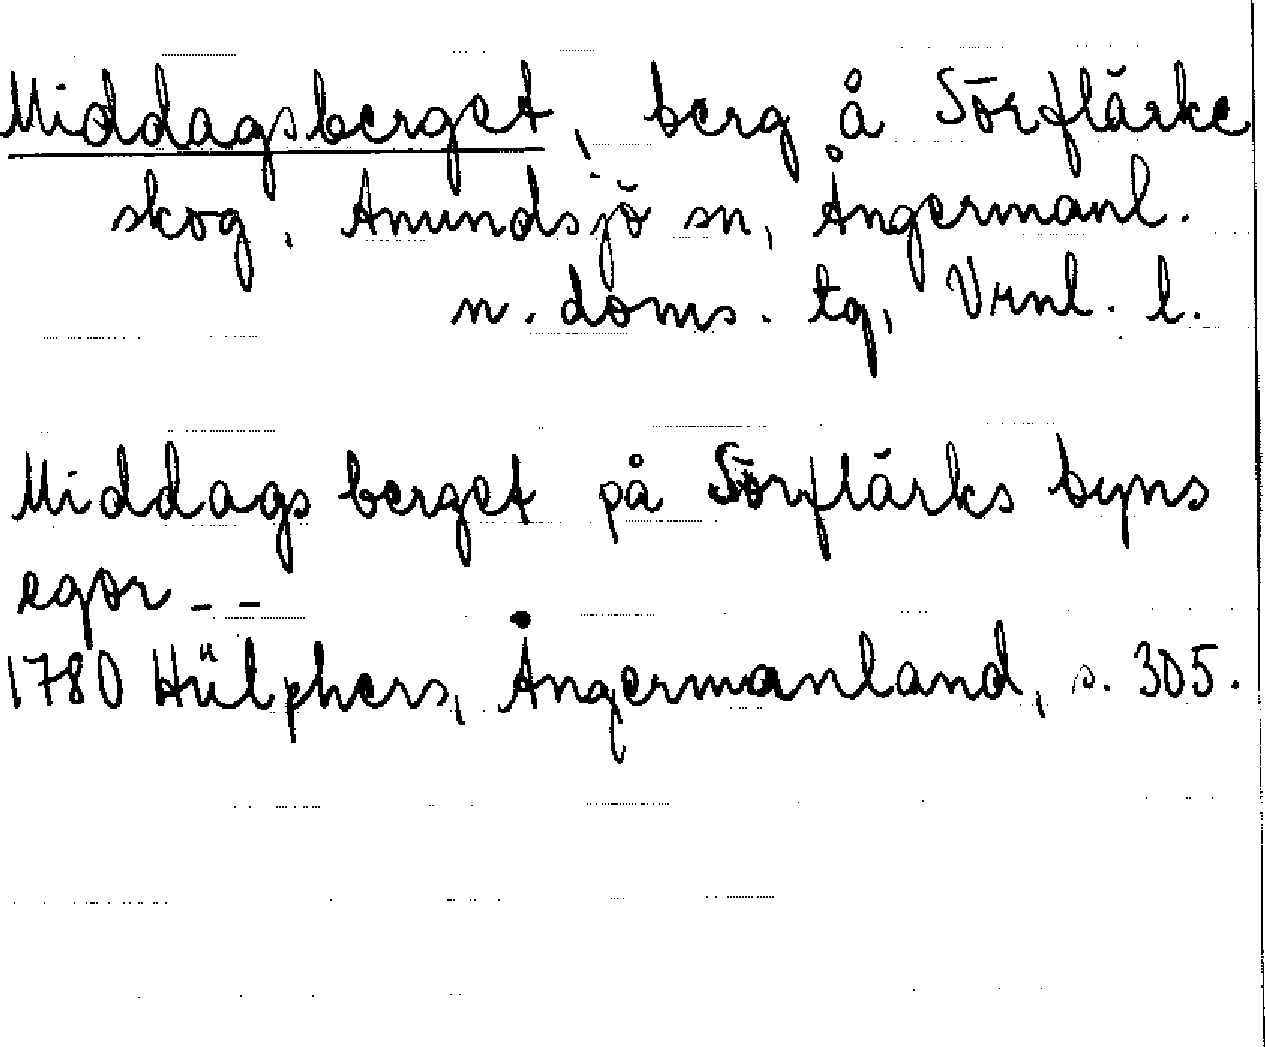 Middagsberget, berg å Sörflärke
skog, Anundsjö sn, Ångermanl.
n. doms. tg, Vrnl. l.
Middags berget på Sörflärks byns
egor _ _
1780 Hülphers, Ångermanland, s. 305.